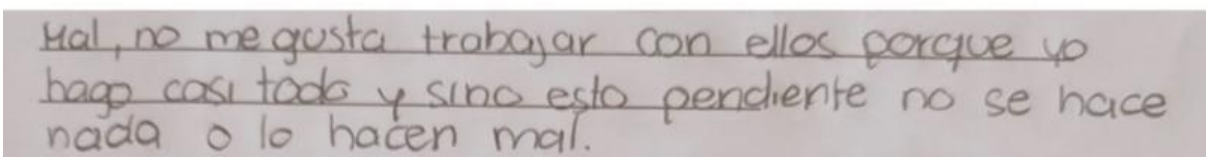 Mal, no me gusta trabajar con ellos porque yo
hago casi todo y sino esto pendiente no se hace
nada o lo hacen mal.